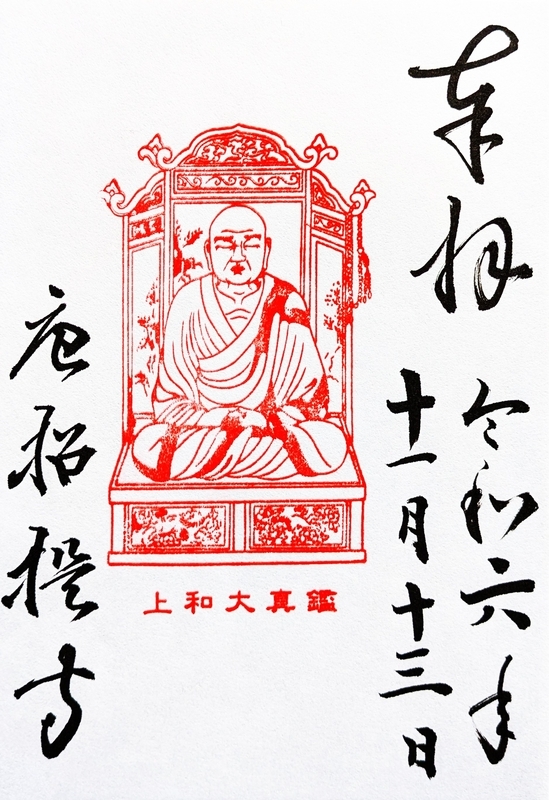 奉拝
令和六年
十一月十三日
上和大真鑑
唐招提寺